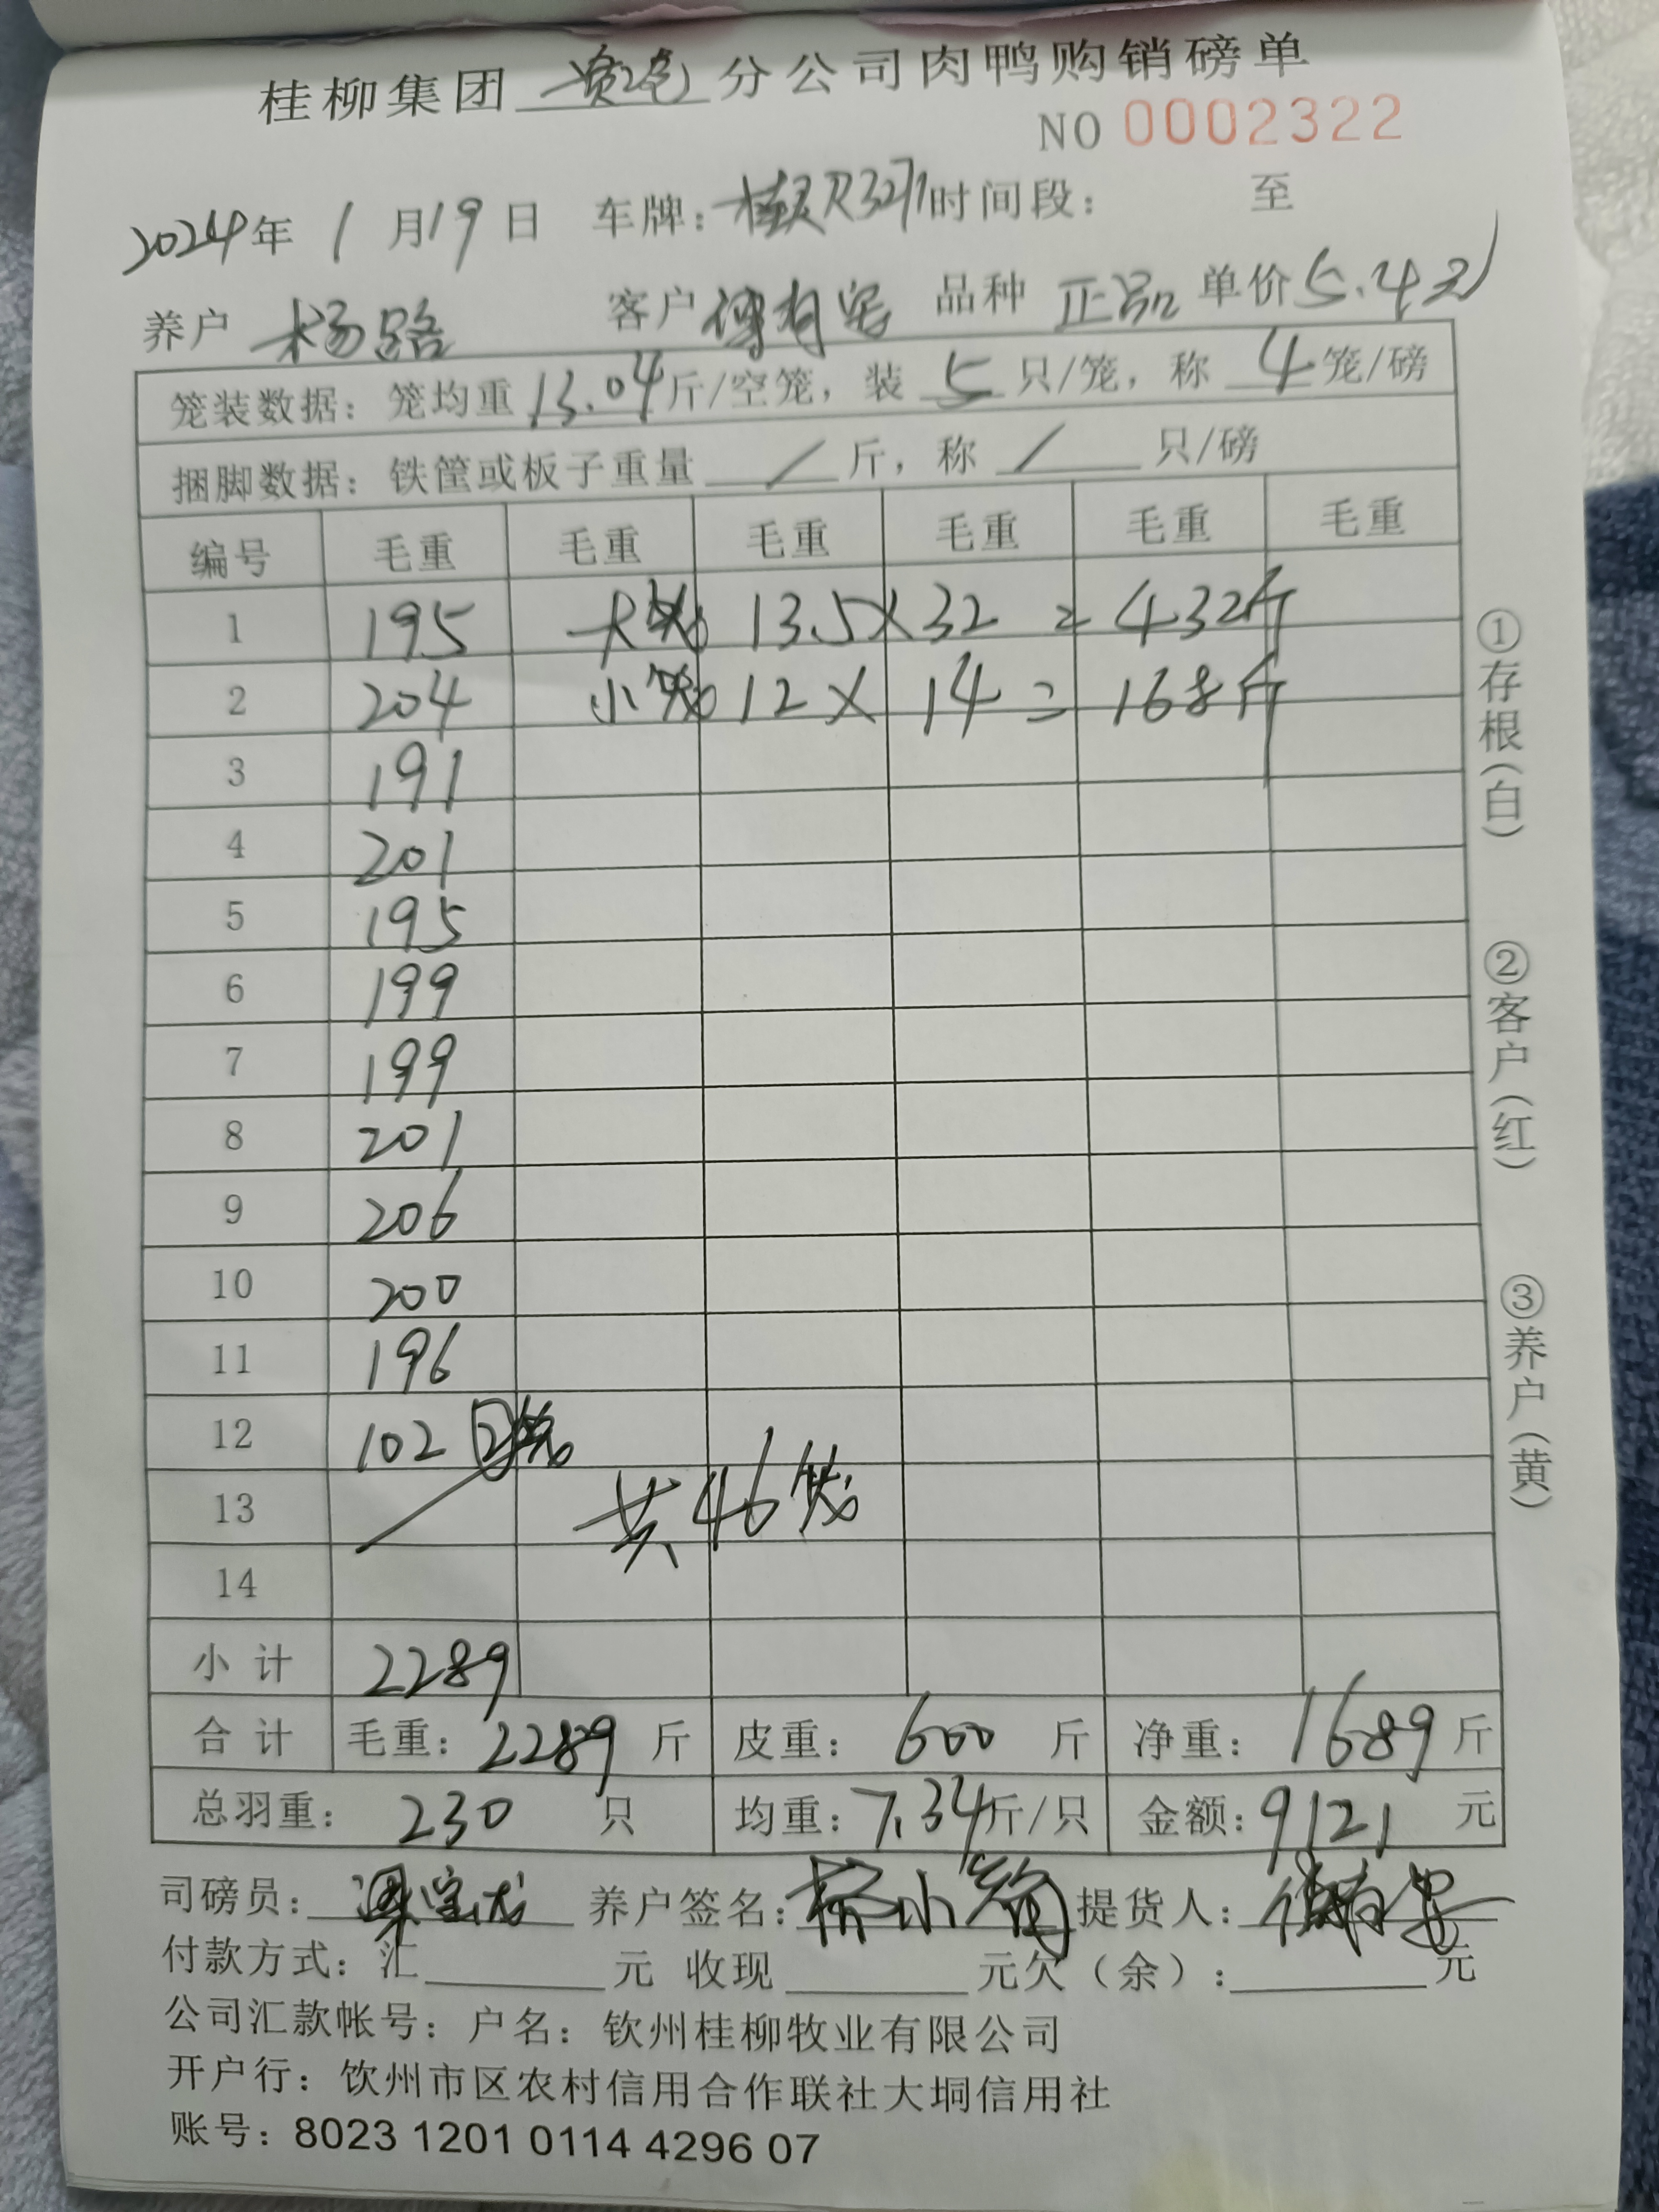 桂柳集团 分公司肉鸭购销磅单
NO 0002322
2024年 1 月19 日 车牌: 桂 R3271 时间段: 至
养户 杨路 客户 品种 正品 单价 5.4元
笼装数据: 笼均重 13.04 斤/空笼, 装 5 只/笼, 称 4 笼/磅
捆脚数据: 铁筐或板子重量 / 斤, 称 / 只/磅
编号 毛重 毛重 毛重 毛重 毛重 毛重
1 195 大笼 13.5×32 = 432斤
2 204 小笼 12 × 14 = 168斤
3 191
4 201
5 195
6 199
7 199
8 201
9 206
10 200
11 196
12 102 2笼
13 共46笼
14
小 计 2289
合 计 毛重: 2289 斤 皮重: 600 斤 净重: 1689 斤
总羽重: 230 只 均重: 7.34 斤/只 金额: 9121 元
司磅员: 养户签名: 提货人:
付款方式: 汇 元 收现 元欠(余): 元
公司汇款帐号: 户名: 钦州桂柳牧业有限公司
开户行: 钦州市区农村信用合作联社大垌信用社
账号: 8023 1201 0114 4296 07
①存根(白)
②客户(红)
③养户(黄)